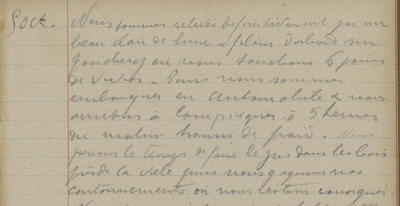 9 oct. Nous sommes relevés définitivement par un
beau clair de lune & filons d'abord sur
où nous touchons 6 jours
de vivres. Puis nous sommes
embarqués en automobile & nous
arrivons à Compiègne à 5 heures
du matin transis de froid. Nous
prenons le temps de faire le jus dans les bois
près de la ville puis nous gagnons nos
cantonnements où nous restons